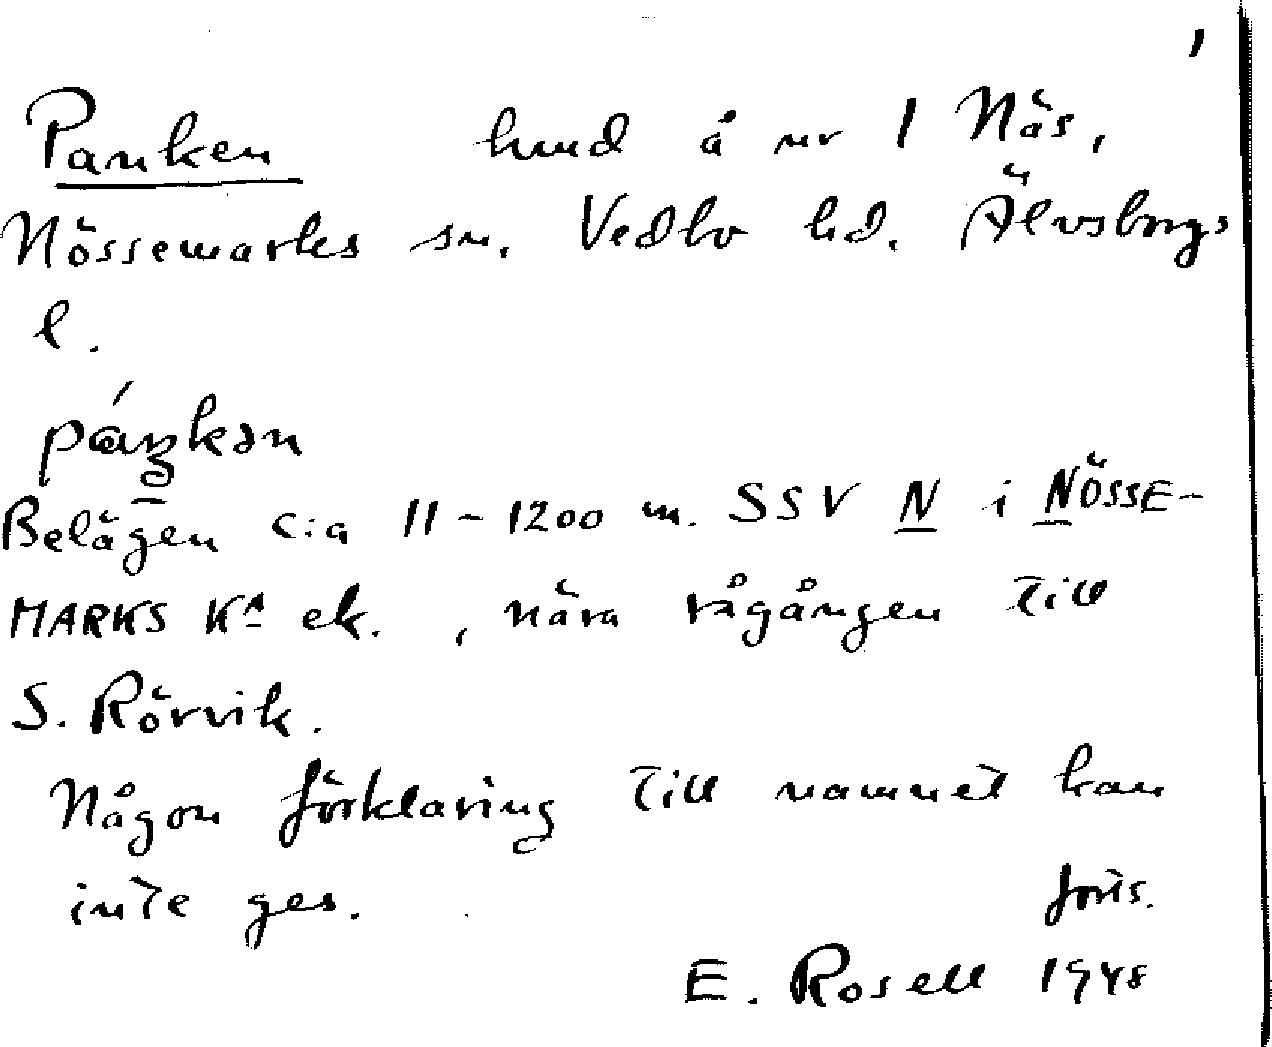 1
Panken lund å nr 1 Näs,
Nössemarks sn. Vedbo hd. Älvsborgs
l.
Belägen c:a 11-1200 m. SSV N i NÖSSE-
MARKS KA ek. , nära rågången till
S. Rörvik.
Någon förklaring till namnet kan
inte ges. forts.
E. Rosell 1948